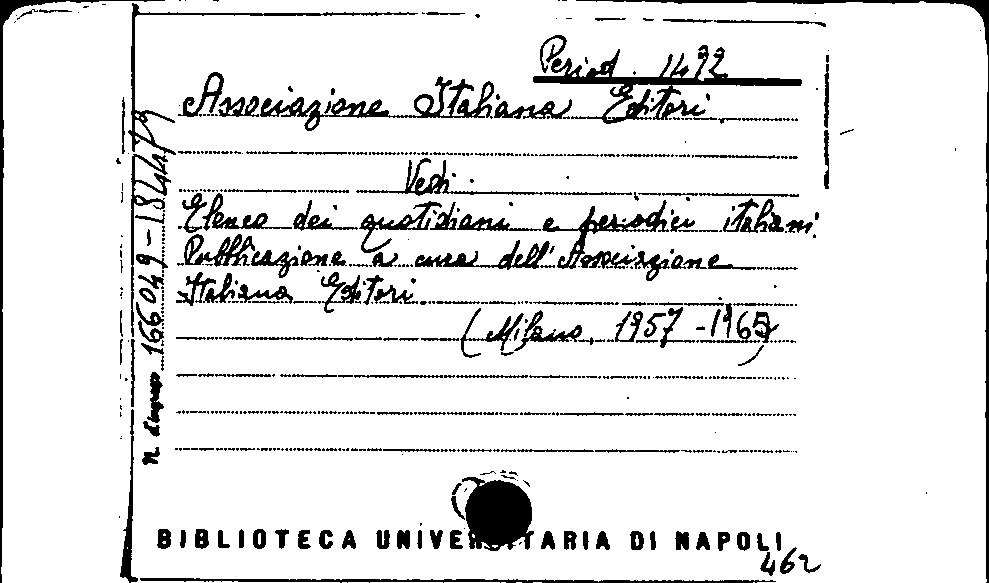 Period. 1492
Associazione Italiana Editori.
Vedi:
Elenco dei quotidiani e periodici italiani.
Pubblicazione a cura dell'Associazione
Italiana Editori.
(Milano, 1957-1965)
n. d'ingresso 166049-184479
BIBLIOTECA UNIVERSITARIA DI NAPOLI
462